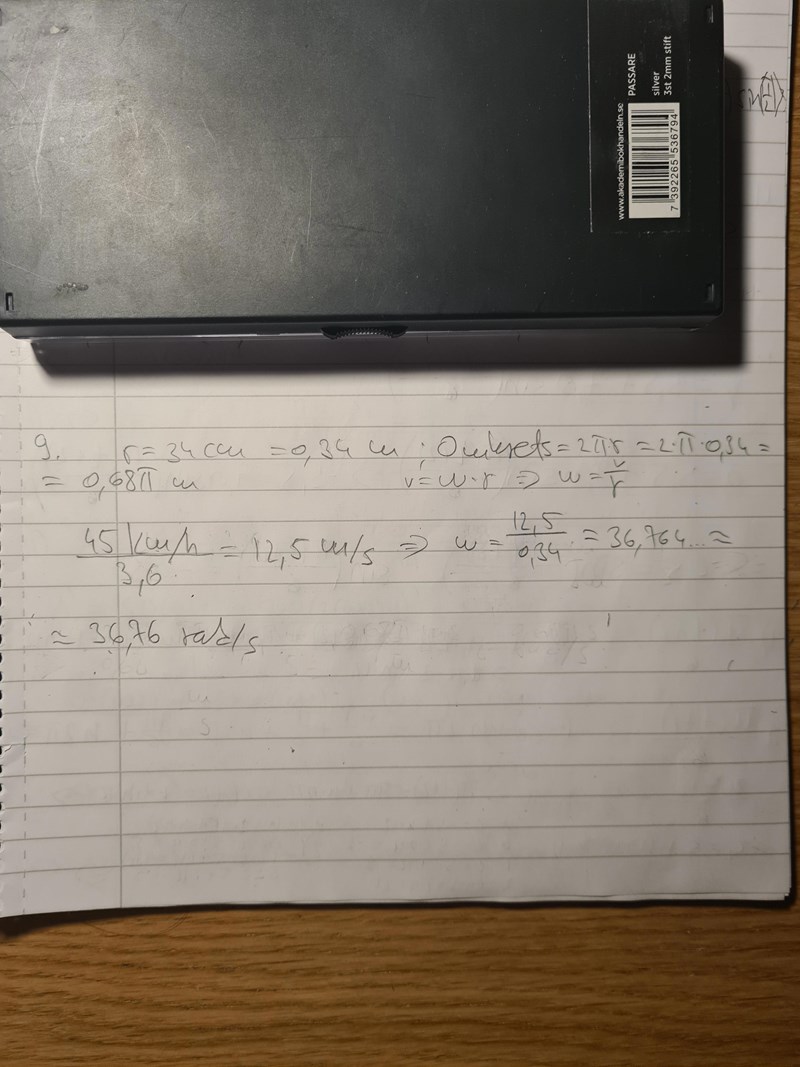 PASSARE
silver
3st 2mm stift
www.akademibokhandeln.se
7 392265 536794
9. r = 34 cm = 0,34 m ; Omkrets = 2πr = 2·π·0,34 =
= 0,68π m v = w·r ⇒ w = v/r
45 km/h / 3,6 = 12,5 m/s ⇒ w = 12,5/0,34 = 36,764... ≈
≈ 36,76 rad/s